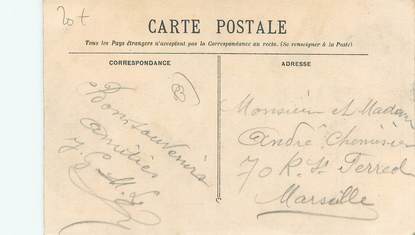 20t
CARTE POSTALE
Tous les Pays étrangers n'acceptent pas la Correspondance au recto. (Se renseigner à la Poste)
CORRESPONDANCE
Bons souvenirs
amitiés
ADRESSE
Monsieur et Madame
André
70 R. St Ferreol
Marseille